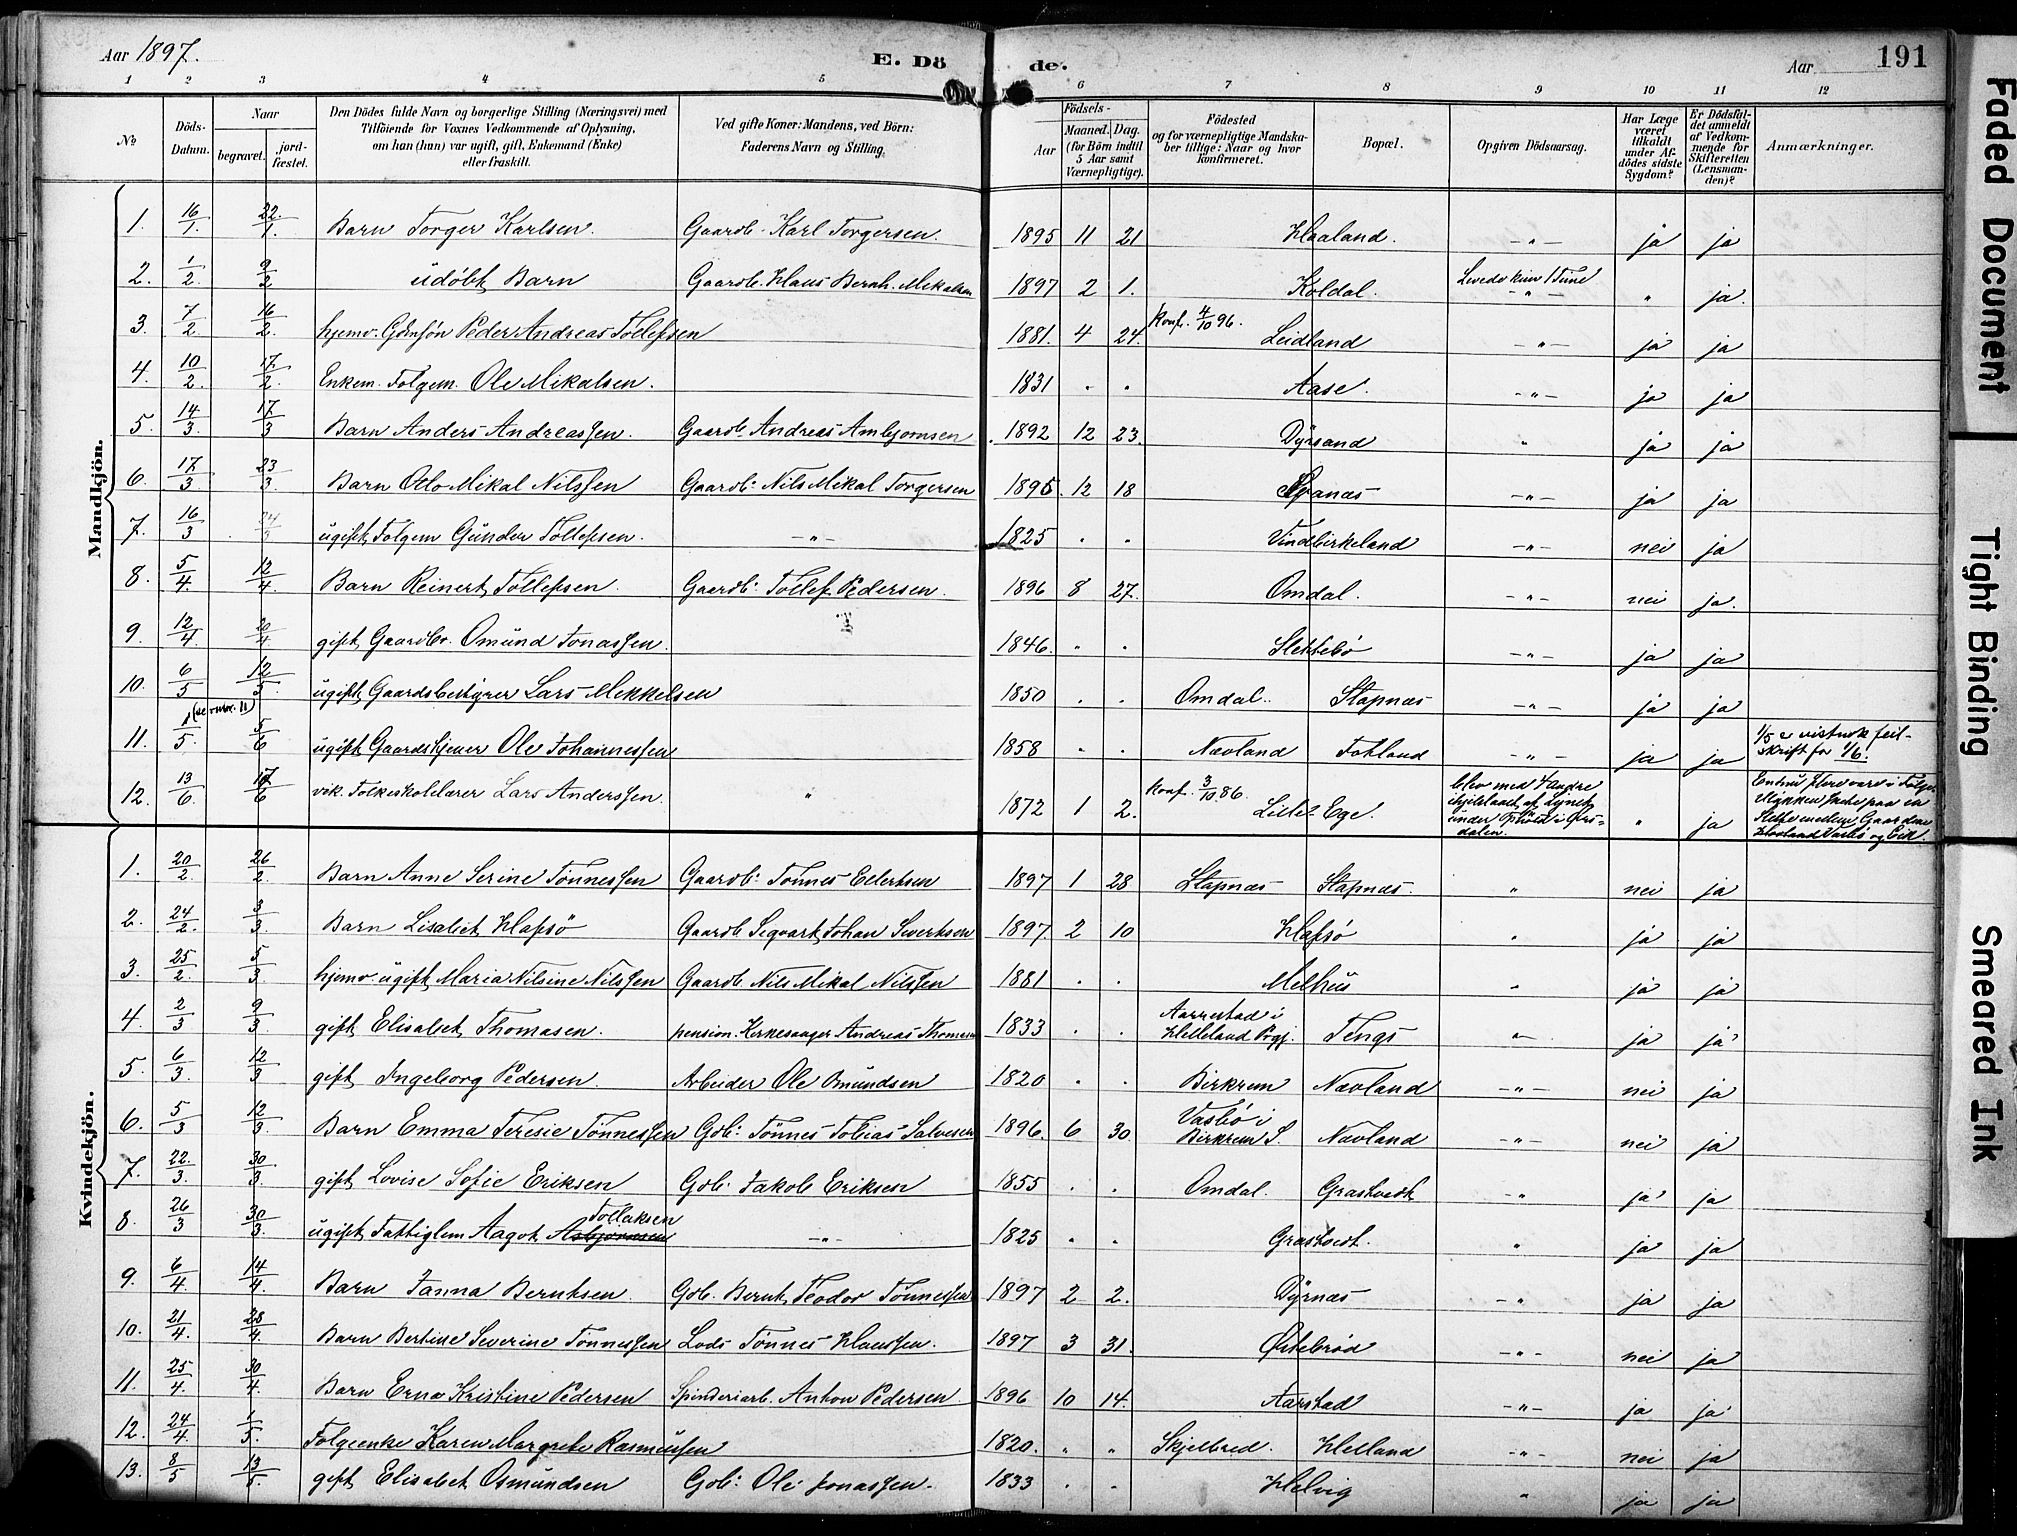 Aar 1897. E. Döde. Aar 191
1 2 3 4 5 6 7 8 9 10 11 12
No Döds-Datum. Naar begravet. jord-fæstet. Den Dödes fulde Navn og borgerlige Stilling (Næringsvei) med Tilföiende for Voxnes Vedkommende af Oplysning, om han (hun) var ugift, gift, Enkemand (Enke) eller fraskilt. Ved gifte Koner: Mandens, ved Börn: Faderens Navn og Stilling. Födsels- Aar Maaned. Dag. (for Börn indtil 5 Aar samt Værnepligtige). Födested og for værnepligtige Mandskaber tillige: Naar og hvor konfirmeret. Bopæl. Opgiven Dödsaarsag. Har Læge været tilkaldt under Afdödes sidste Sygdom? Er Dödsfaldet anmeldt af Vedkommende for Skifteretten (Lensmanden)? Anmærkninger.
Mandkjön.
1. 16/1. 22./1. Barn Torger Karlsen. Gaardb. Karl Torgersen. 1895 11 21 Haaland. -„- ja ja
2. 1/2. 9/2 udöbt Barn Gaardb. Klaus Bernh. Mikalsen 1897 2 1. Koldal. Levede kun 1 Time -„- „ ja.
3. 7/2. 16/2. hjemv. Gdmsön Peder Andreas Tollefsen 1881. 4 24. Konf. 4/10 96. Leidland -„- ja ja
4. 10/2. 17/2. Enkem. Folgem. Ole Mikalsen. 1831 „ „ Aase. -„- ja ja
5. 14/3. 17/3 Barn Anders Andreassen. Gaardb. Andreas Ambjornsen 1892 12 23. Dyrsand „ ja ja
6. 17/3. 23/3. Barn Otto Mikal Nilssen Gaardb: Nils Mikal Torgersen 1895. 12 18 -„- ja ja
7. 16/3 24/3 ugift Folgem Gunder Tollefsen. -„- 1825 „ „ Vindbirkeland -„- nei ja
8. 5/4. 12/4 Barn Reinert Tollefsen. Gaardb: Tollef Pedersen. 1896 8 27. Omdal. -„- nei ja.
9. 12/4 20/4 gift Gaardbr. Omund Jonassen. 1846. „ „ Slettebö -„- ja ja
10. 6/5 12/5. ugift Gaardsbestyrer Lars Mikkelsen 1850 „ „ Omdal. Stapnæs -„- ja ja
11. 1/5. (se anm. 11) 5/6 ugift Gaardstjener Ole Johannessen 1858 „ „ Nævland Fotland -„- ja ja 1/5 e vistnok feilskrift for 1/6.
12. 13/6. 17/6 vik. Folkeskolelærer Lars Anderssen. „ 1872 1 2. Konf. 3/10 86. Lille-Ege. blev med 4 andre ihjelslaaet af Lynet under Ophold i Örsdalen. „ ja
Kvindekjön.
1. 20/2. 26/2. Barn Anne Serine Tönnessen Gaardb: Tönnes Edertsen 1897 1 28 Stapnæs Stapnæs. „ nei ja
2. 24/2. 3/3. Barn Lisabet Hafsö Gaardb Seqvart Johan Sivertsen 1897. 2 10 Hafsö „ ja ja
3. 25/2. 5/3. hjemv. ugift Maria Nilsine Nilssen Gaardb. Nils Mikal Nilssen 1881 „ „ Melhus „ ja ja
4. 2/3 9/3. gift Elisabet Thomasen. pension. Kirkesanger Andreas Thomasen 1833 „ „ Aarrestad i Helleland Prgj. Tengs „ ja ja
5. 6/3 12/3 gift Ingeborg Pedersen. Arbeider Ole Omundsen 1820 „ „ Birkrem Nævland -„- nei ja
6. 5/3 12/3. Barn Emma Teresie Tönnessen Gdb: Tönnes Tobias Salvesen 1896. 6 30. Vasbö i Birkrem S. Nævland -„- nei ja
7. 22./3. 30/3 gift Lovise Sofie Eriksen Gdb: Jakob Eriksen 1855 „ „ Omdal. Grastvedt -„ ja ja
8. 26/3 30/3. ugift Fattiglem Aagot Asbjörnsen Tollaksen -„- 1825 „ „ Grastvedt. „ ja ja
9. 6/4 14/4 Barn Janna Berntsen. Gdb. Bernt Teodor Tönnessen 1897 2 2. Dyrnæs -„ ja ja
10. 21/4. 28/4 Barn Bertine Severine Tönnessen Lods Tönnes Klaussen. 1897 3 31. Östebröd -„- nei ja
11. 25/4. 30/4. Barn Erna Kristine Pedersen Spinderiarb. Anton Pedersen. 1896 10 14. Aarstad -„- ja ja
12. 24/4. 1/5. Folgeenke Karen Margrete Rasmussen 1820. „ „ Skjelbred. Helland -„- nei ja
13. 8/5 13/5. gift Elisabet Osmundsen Gdb: Ole Jonassen. 1833 „ „ Helvig „ ja ja
Faded Document
Tight Binding
Smeared Ink